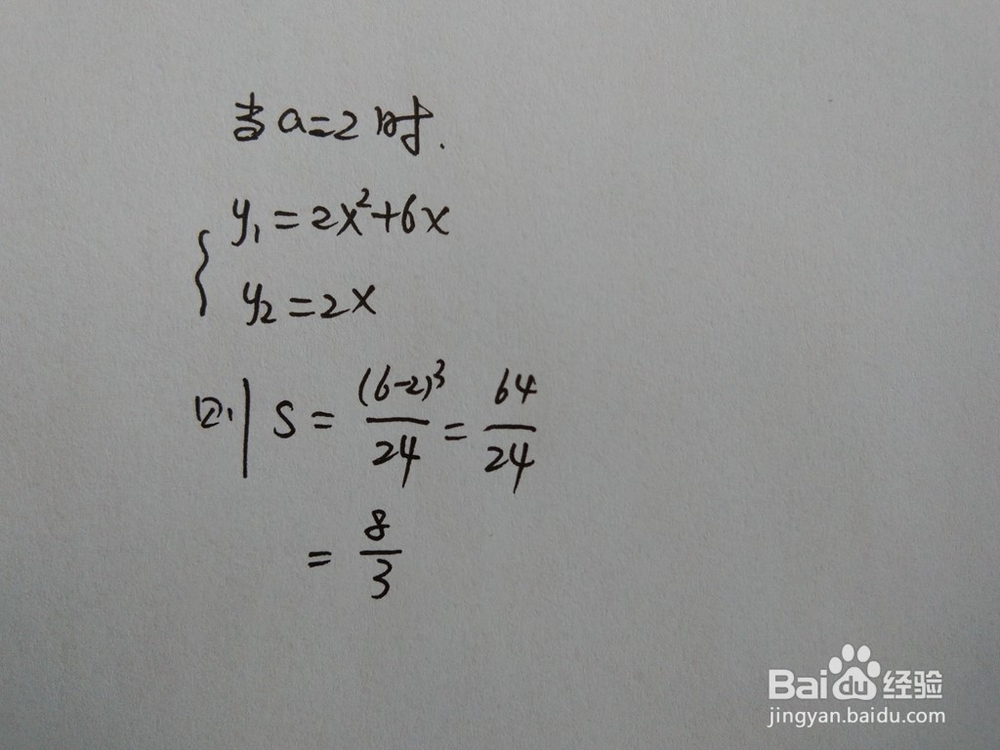 当a=2时.
y₁=2x²+6x
y₂=2x
则 S = (6-2)³/24 = 64/24
= 8/3
Baidu经验
jingyan.baidu.com